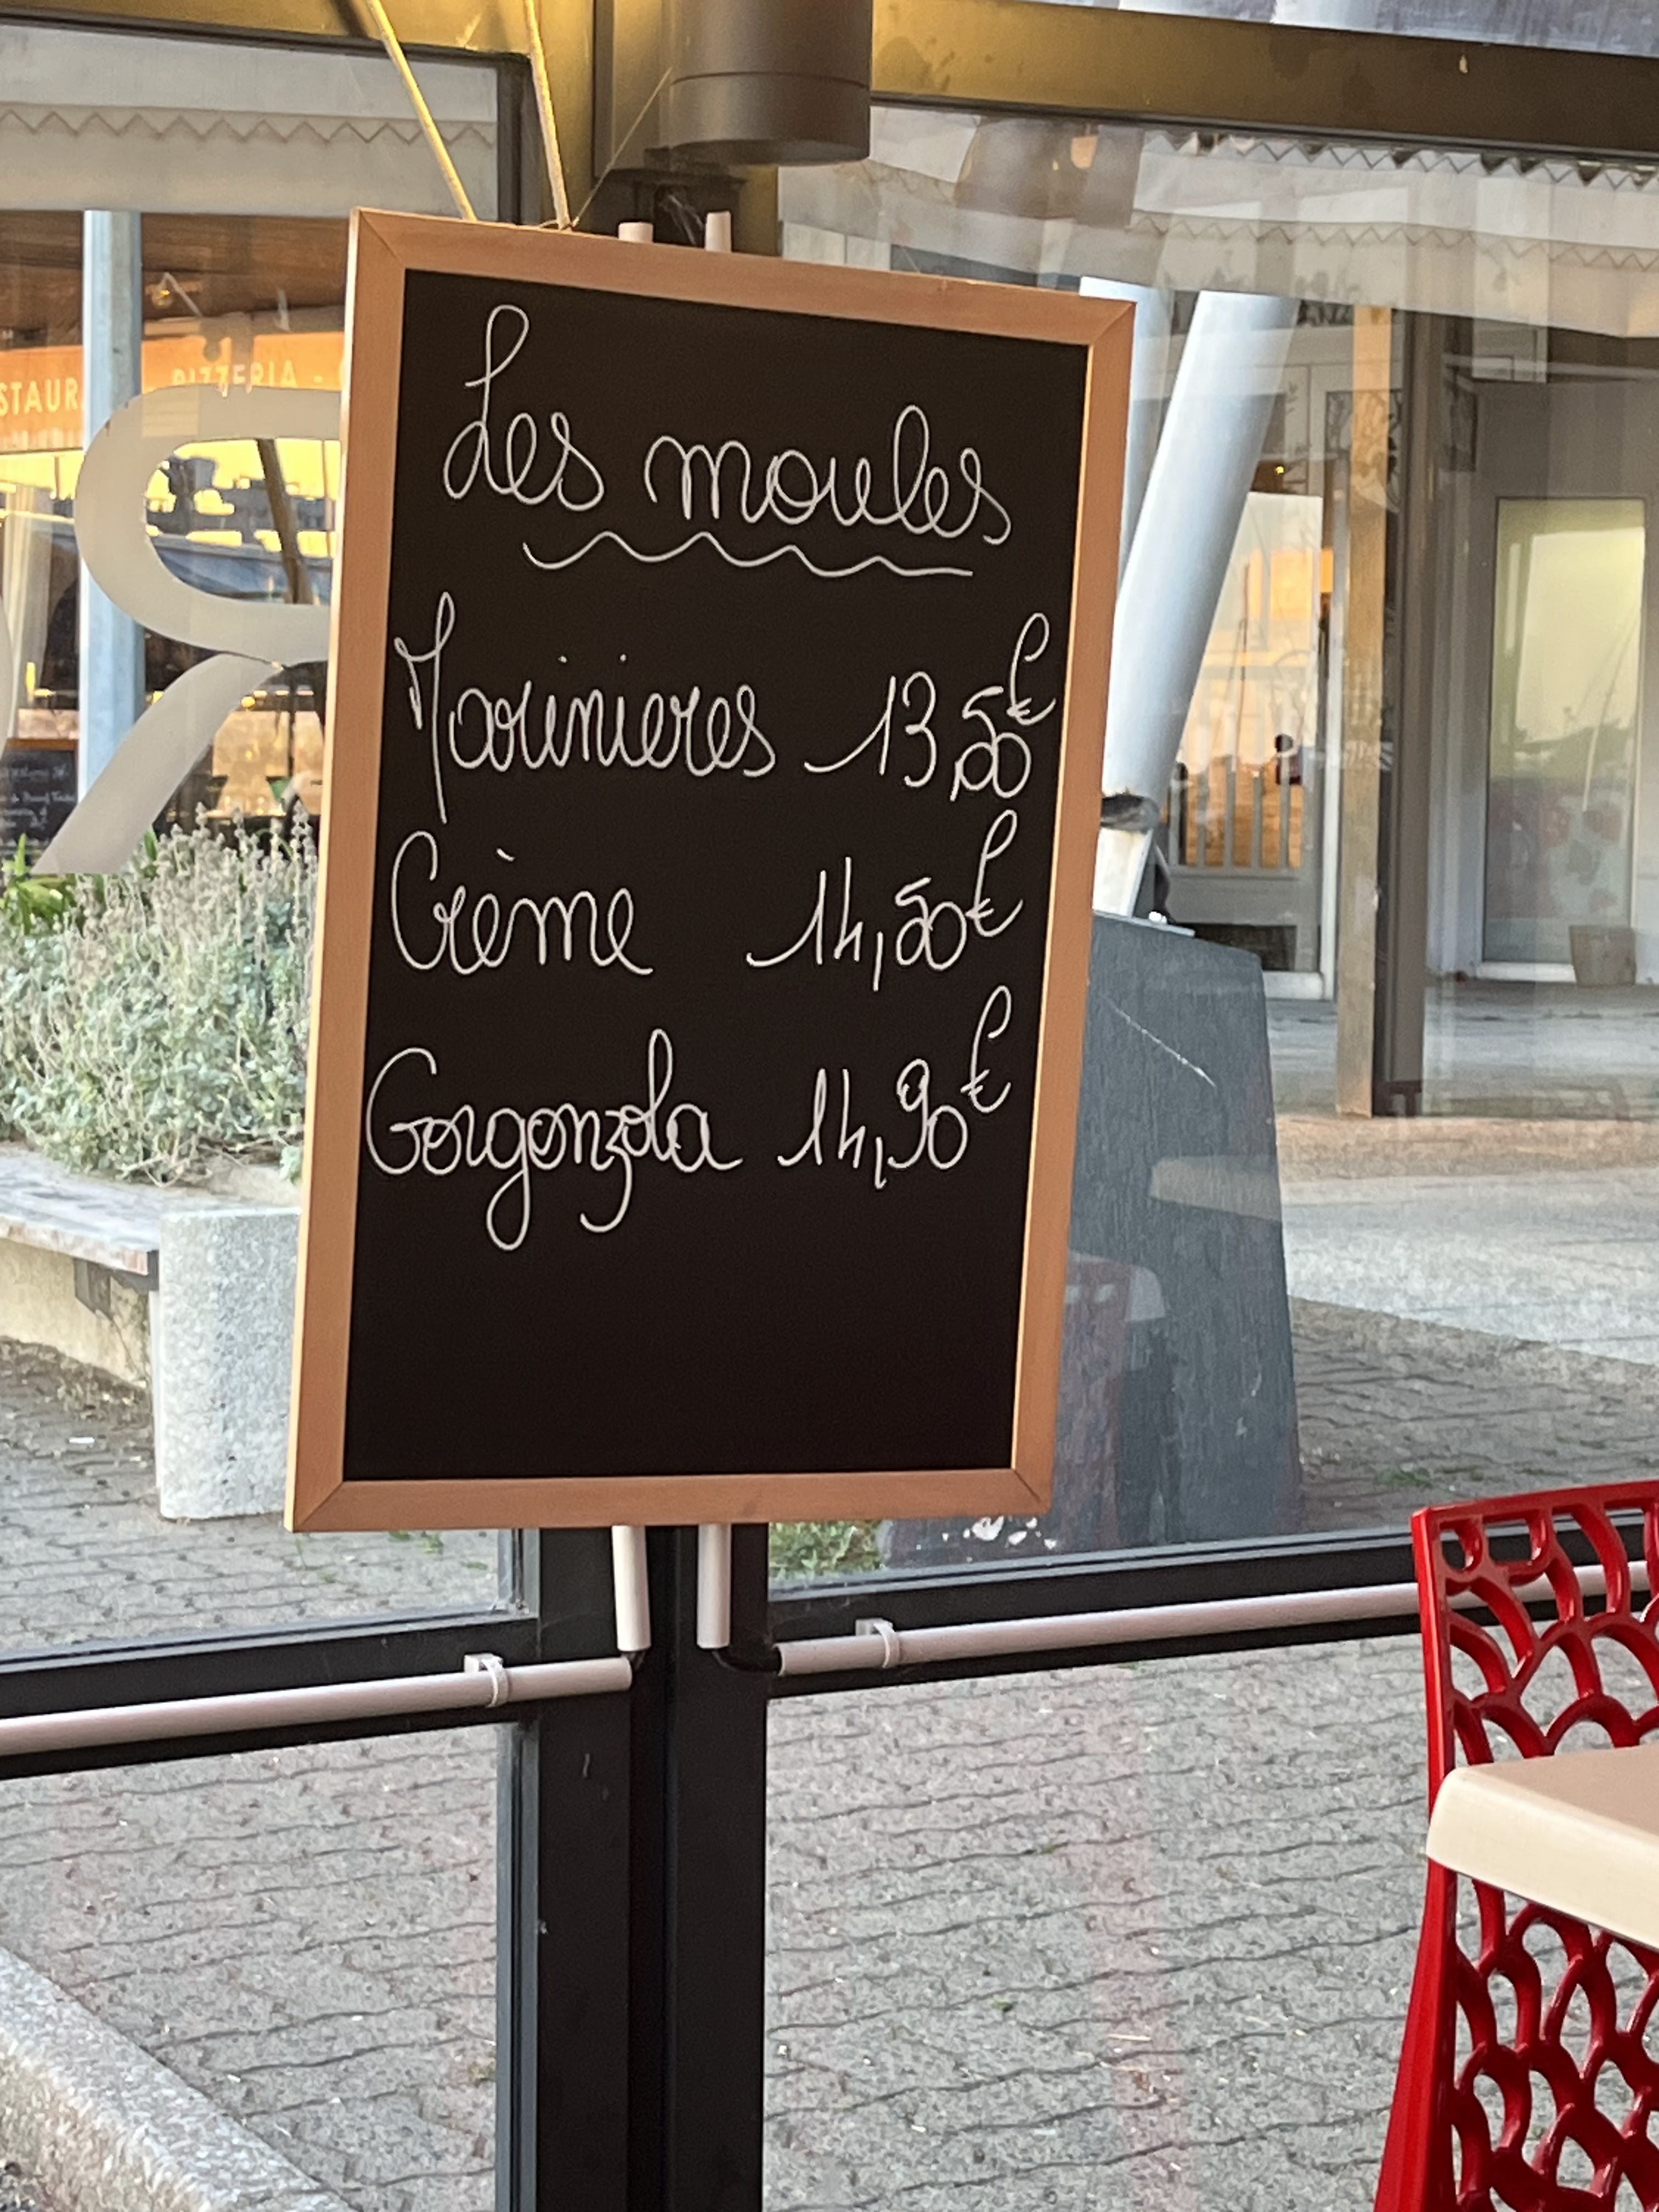 STAUR
PIZZERIA -
R
Les moules
Marinieres 13,50€
Crème 14,50€
Gorgonzola 14,90€